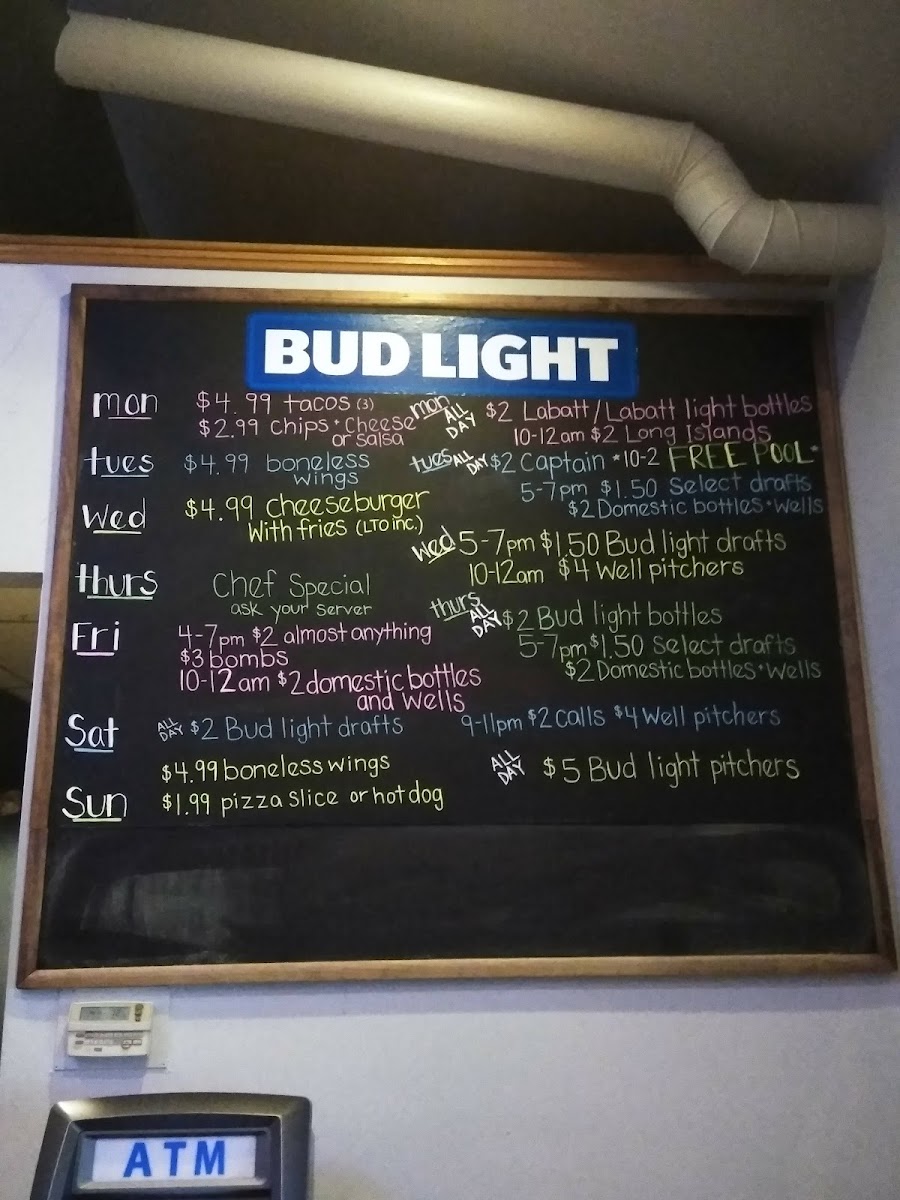 BUD LIGHT
mon $4.99 tacos (3)
$2.99 chips • cheese or salsa
mon ALL DAY $2 Labatt/Labatt light bottles
10-12am $2 Long Islands
tues $4.99 boneless wings
tues ALL DAY $2 Captain *10-2 FREE POOL*
5-7pm $1.50 Select drafts
$2 Domestic bottles • wells
Wed $4.99 cheeseburger
With fries (LTO inc.)
Wed 5-7pm $1.50 Bud light drafts
10-12am $4 Well pitchers
thurs Chef Special
ask your server
thurs ALL DAY $2 Bud light bottles
5-7pm $1.50 Select drafts
$2 Domestic bottles • Wells
Fri 4-7pm $2 almost anything
$3 bombs
10-12am $2 domestic bottles
and wells
Sat ALL DAY $2 Bud light drafts 9-11pm $2 calls $4 Well pitchers
Sun $4.99 boneless wings
$1.99 pizza slice or hot dog
ALL DAY $5 Bud light pitchers
ATM